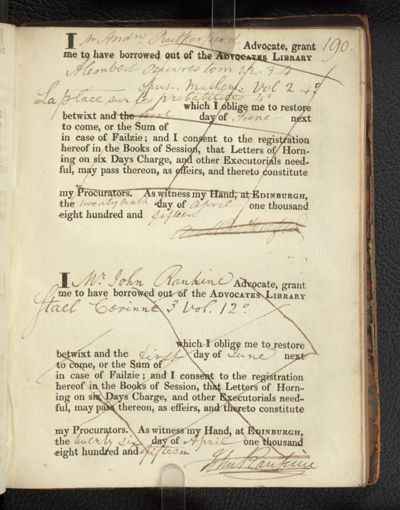 I Mr Andw Rutherfurd Advocate, grant 190.
me to have borrowed out of the ADVOCATES LIBRARY
Alembert Oeuvres tom
opus. Mathem. Vol 2 4o
La place sur les probabilités 4o
which I oblige me to restore
betwixt and the first day of June next
to come, or the Sum of
in case of Failzie; and I consent to the registration
hereof in the Books of Session, that Letters of Horn-
ing on six Days Charge, and other Executorials need-
ful, may pass thereon, as effeirs, and thereto constitute
my Procurators. As witness my Hand, at EDINBURGH,
the twenty sixth day of April one thousand
eight hundred and fifteen
I Mr. John Rankine Advocate, grant
me to have borrowed out of the ADVOCATES LIBRARY
Stael Corinne 3 Vol. 12o
which I oblige me to restore
betwixt and the first day of June next
to come, or the Sum of
in case of Failzie; and I consent to the registration
hereof in the Books of Session, that Letters of Horn-
ing on six Days Charge, and other Executorials need-
ful, may pass thereon, as effeirs, and thereto constitute
my Procurators. As witness my Hand, at EDINBURGH,
the twenty six day of April one thousand
eight hundred and fifteen
John Rankine